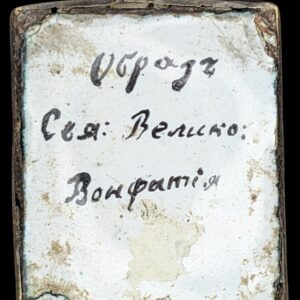 Образъ
Свя: Велико:
Вонфатія